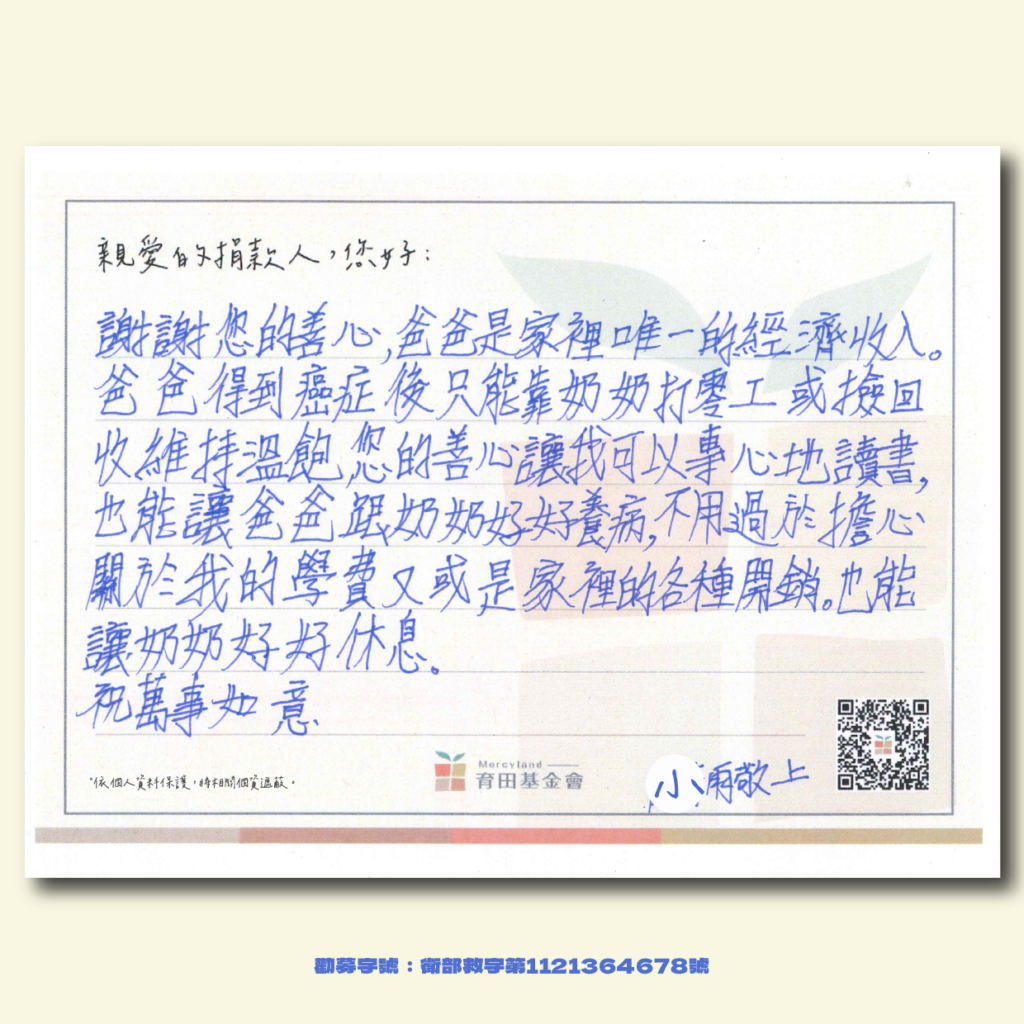 親愛的捐款人，您好：
謝謝您的善心,爸爸是家裡唯一的經濟收入。
爸爸得到癌症後只能靠奶奶打零工或撿回
收維持溫飽,您的善心讓我可以專心地讀書,
也能讓爸爸跟奶奶好好養病,不用過於擔心
關於我的學費又或是家裡的各種開銷。也能
讓奶奶好好休息。
祝萬事如意
小雨敬上
*依個人資料保護，將相關個資遮蔽。
Mercyland
育田基金會
勸募字號：衛部救字第1121364678號